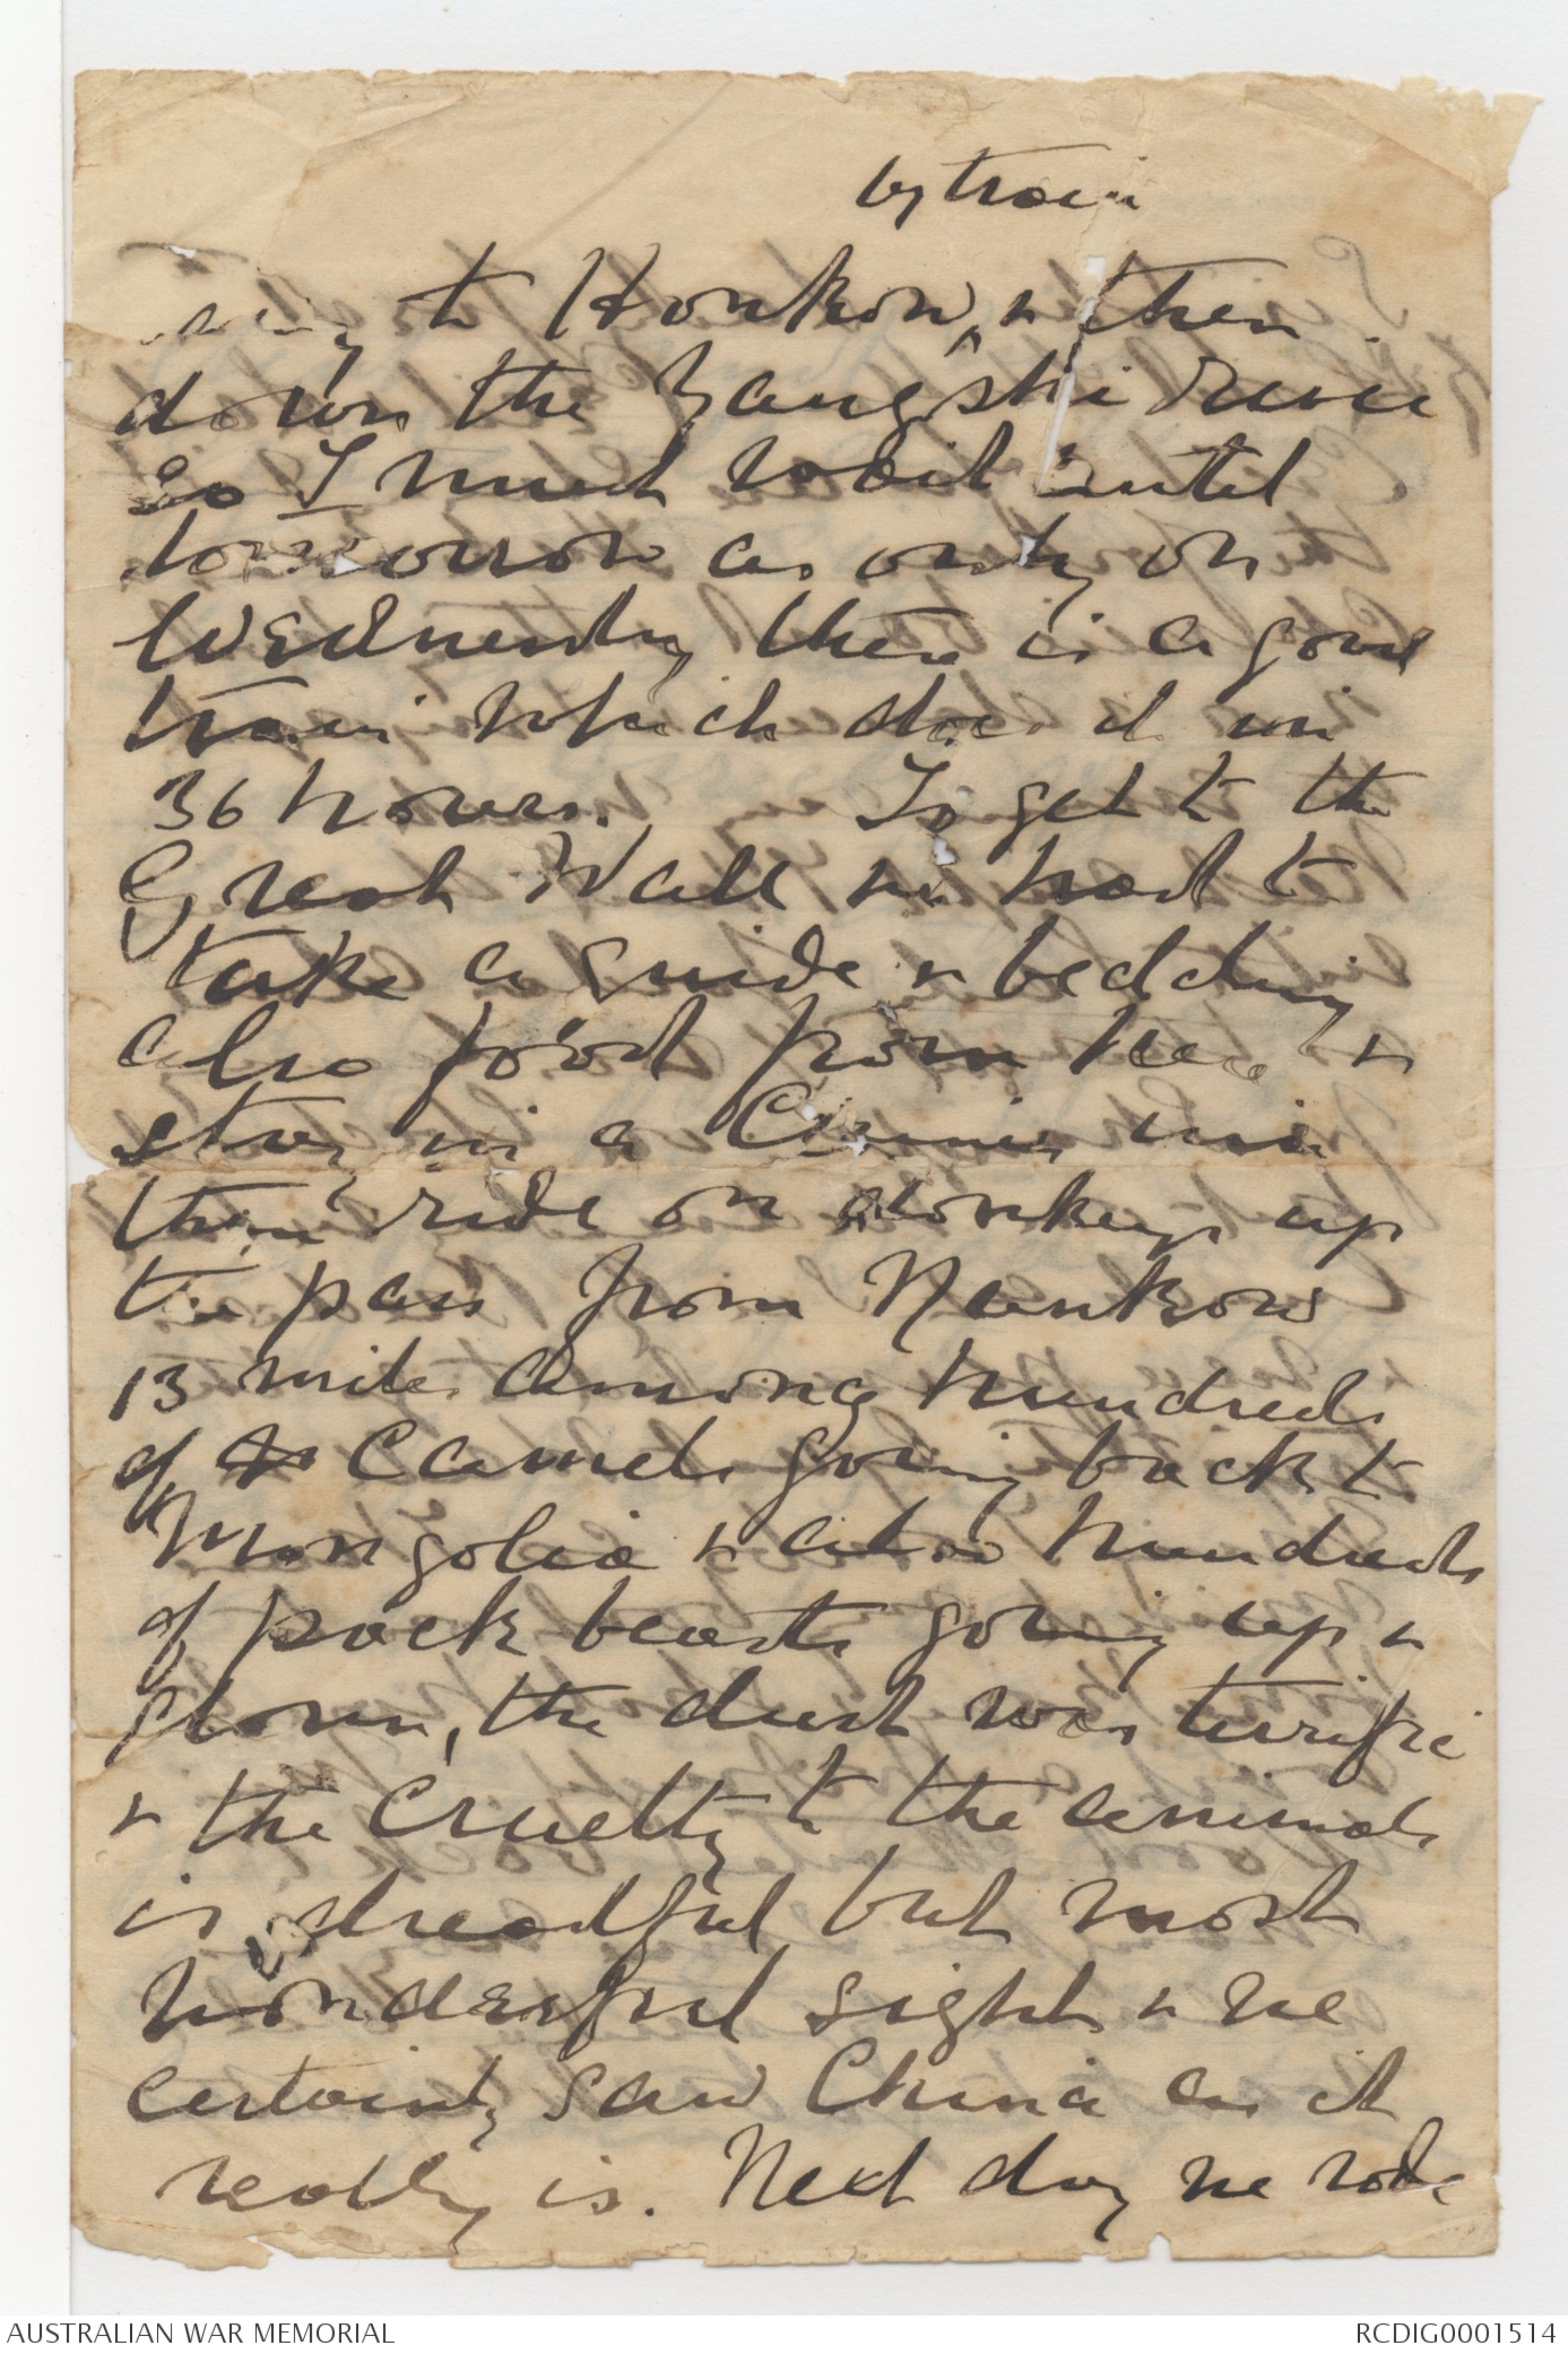 by train
to Honkow, & then
down the Yangtshi River
so I must wait until
tomorrow as only on
Wednesday there is a good
train which does it in
36 hours. To get to the
Great Wall we had to
take a guide & bedding
also food from here &
stay in a Chinese inn
then ride on donkeys up
the pass from Nankow
13 miles among hundreds
of Camels going back to
Mongolia & also hundreds
of pack beasts going up &
down, the dust was terrific
& the cruelty to the animals
is dreadful but most
wonderful sight & we
certainly saw China as it
really is. Next day we rode
AUSTRALIAN WAR MEMORIAL
RCDIG0001514